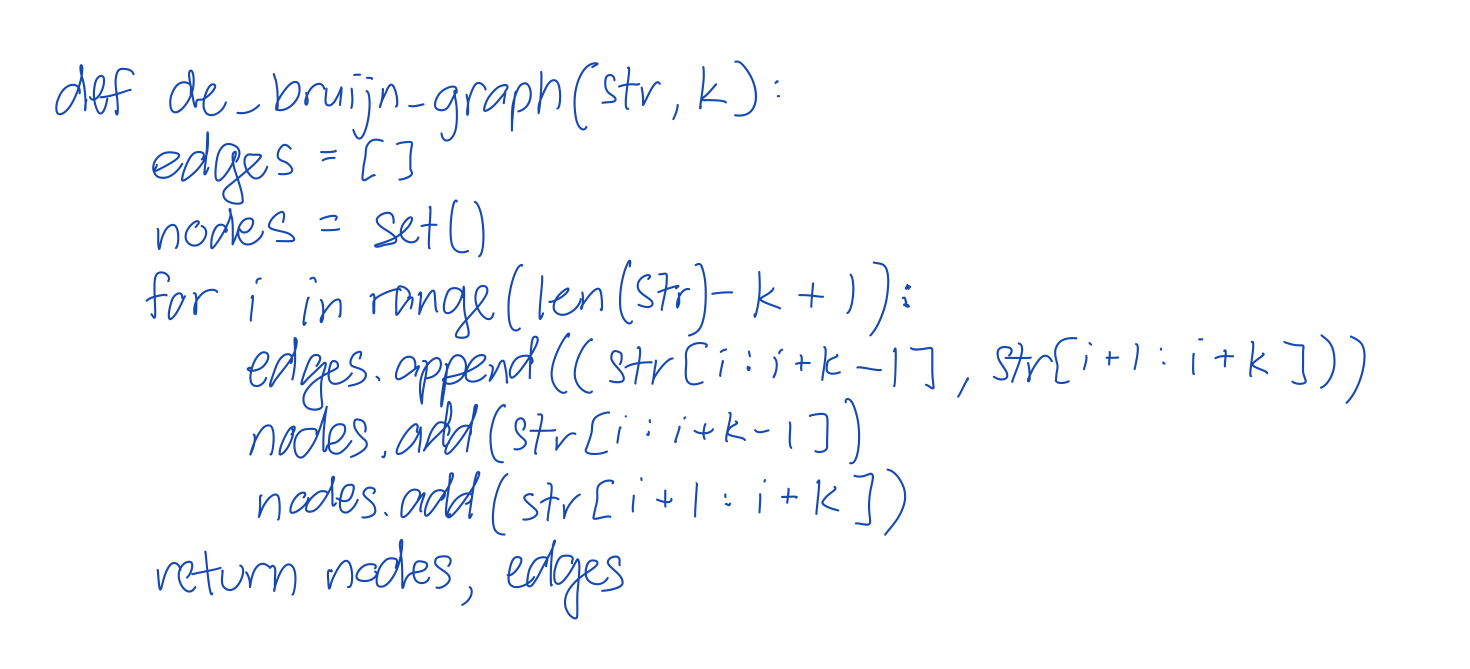 def de_bruijn_graph(str, k):
edges = []
nodes = set()
for i in range(len(str)-k+1):
edges.append((str[i:i+k-1], str[i+1:i+k]))
nodes.add(str[i:i+k-1])
nodes.add(str[i+1:i+k])
return nodes, edges